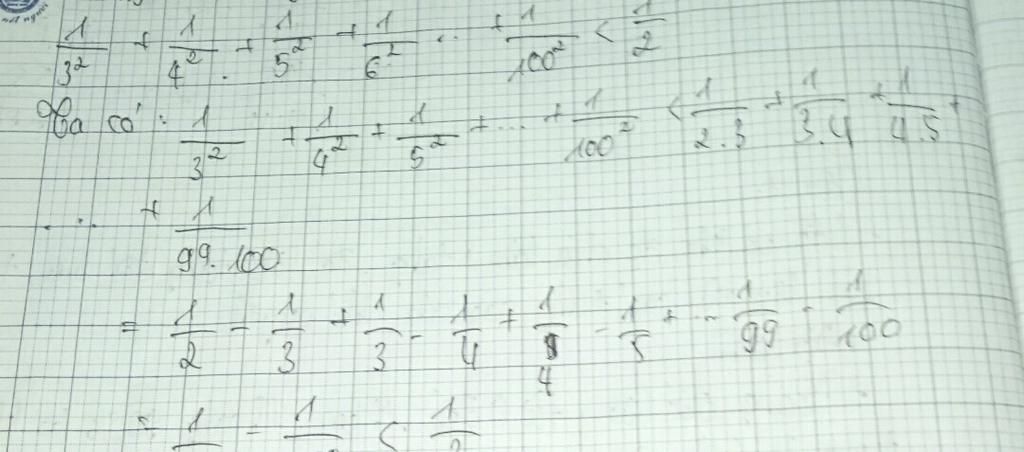 1/3² + 1/4² + 1/5² + 1/6² ... + 1/100² < 1/2
Ta có: 1/3² + 1/4² + 1/5² + ... + 1/100² < 1/2.3 + 1/3.4 + 1/4.5 +
... + 1/99.100
= 1/2 - 1/3 + 1/3 - 1/4 + 1/4 - 1/5 + ... 1/99 - 1/100
= 1/ - 1/ < 1/